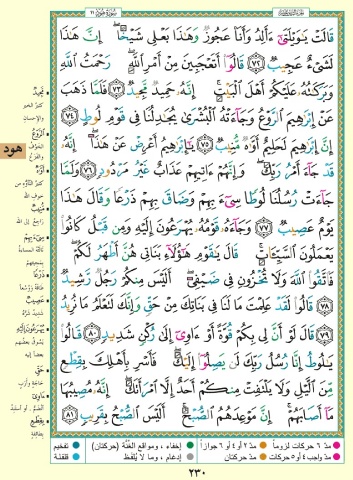 سورة هود ١١
قَالَتْ يَٰوَيْلَتَىٰٓ ءَأَلِدُ وَأَنَا۠ عَجُوزٌ وَهَٰذَا بَعْلِى شَيْخًا إِنَّ هَٰذَا
لَشَىْءٌ عَجِيبٌ ٧٢ قَالُوٓا۟ أَتَعْجَبِينَ مِنْ أَمْرِ ٱللَّهِ رَحْمَتُ ٱللَّهِ
وَبَرَكَٰتُهُۥ عَلَيْكُمْ أَهْلَ ٱلْبَيْتِ إِنَّهُۥ حَمِيدٌ مَّجِيدٌ ٧٣ فَلَمَّا ذَهَبَ
عَنْ إِبْرَٰهِيمَ ٱلرَّوْعُ وَجَآءَتْهُ ٱلْبُشْرَىٰ يُجَٰدِلُنَا فِى قَوْمِ لُوطٍ ٧٤
إِنَّ إِبْرَٰهِيمَ لَحَلِيمٌ أَوَّٰهٌ مُّنِيبٌ ٧٥ يَٰٓإِبْرَٰهِيمُ أَعْرِضْ عَنْ هَٰذَآ إِنَّهُۥ
قَدْ جَآءَ أَمْرُ رَبِّكَ وَإِنَّهُمْ ءَاتِيهِمْ عَذَابٌ غَيْرُ مَرْدُودٍ ٧٦ وَلَمَّا
جَآءَتْ رُسُلُنَا لُوطًا سِىٓءَ بِهِمْ وَضَاقَ بِهِمْ ذَرْعًا وَقَالَ هَٰذَا
يَوْمٌ عَصِيبٌ ٧٧ وَجَآءَهُۥ قَوْمُهُۥ يُهْرَعُونَ إِلَيْهِ وَمِن قَبْلُ كَانُوا۟
يَعْمَلُونَ ٱلسَّيِّـَٔاتِ قَالَ يَٰقَوْمِ هَٰٓؤُلَآءِ بَنَاتِى هُنَّ أَطْهَرُ لَكُمْ
فَٱتَّقُوا۟ ٱللَّهَ وَلَا تُخْزُونِ فِى ضَيْفِىٓ أَلَيْسَ مِنكُمْ رَجُلٌ رَّشِيدٌ
٧٨ قَالُوا۟ لَقَدْ عَلِمْتَ مَا لَنَا فِى بَنَاتِكَ مِنْ حَقٍّ وَإِنَّكَ لَتَعْلَمُ مَا نُرِيدُ
٧٩ قَالَ لَوْ أَنَّ لِى بِكُمْ قُوَّةً أَوْ ءَاوِىٓ إِلَىٰ رُكْنٍ شَدِيدٍ ٨٠ قَالُوا۟
يَٰلُوطُ إِنَّا رُسُلُ رَبِّكَ لَن يَصِلُوٓا۟ إِلَيْكَ فَأَسْرِ بِأَهْلِكَ بِقِطْعٍ
مِّنَ ٱلَّيْلِ وَلَا يَلْتَفِتْ مِنكُمْ أَحَدٌ إِلَّا ٱمْرَأَتَكَ إِنَّهُۥ مُصِيبُهَا
مَآ أَصَابَهُمْ إِنَّ مَوْعِدَهُمُ ٱلصُّبْحُ أَلَيْسَ ٱلصُّبْحُ بِقَرِيبٍ ٨١
هود
مَجِيدٌ
كثيرُ الخيرِ
والإحسانِ
الرَّوْعُ
الخَوْفُ
والفَزَعُ
أَوَّاهٌ
كثيرُ التَّأوُّهِ من
خوفِ الله
مُنِيبٌ
راجعٌ إلى الله
سِيءَ بِهِمْ
نالَتْهُ المساءةُ
بمجيئهم
ذَرْعًا
طاقةً ووُسْعًا
عَصِيبٌ
شديدٌ شرُّه
يُهْرَعُونَ إِلَيْهِ
حَقٍّ
حاجةٍ وأرَبٍ
ءَاوِي
بِقِطْعٍ
بطائفةٍ
مدّ ٦ حركات لزوماً
مدّ ٢ أو ٤ أو ٦ جوازاً
إخفاء، ومواقع الغُنَّة (حركتان)
تفخيم
مدّ واجب ٤ أو ٥ حركات
مدّ حركتان
إدغام، وما لا يُلفَظ
قلقلة
٢٣٠